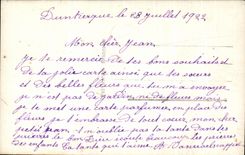 Dunkerque le 28 Juillet 1922
Mon cher Jean
Je te remercie de tes bons souhaits et
de ta jolie carte ainsi que tes sœurs
et des belles fleurs que tu m'a envoyer
je n'ai pas de jardin ni de fleurs mais
je te met une carte parfumer, en place des
fleurs je t'embrasse de tout cœur, mon cher
petit Jean, et n'oublie pas ta tante dans tes
prières le bon Dieu exauce les prières
des enfants Ta tante qui t'aime